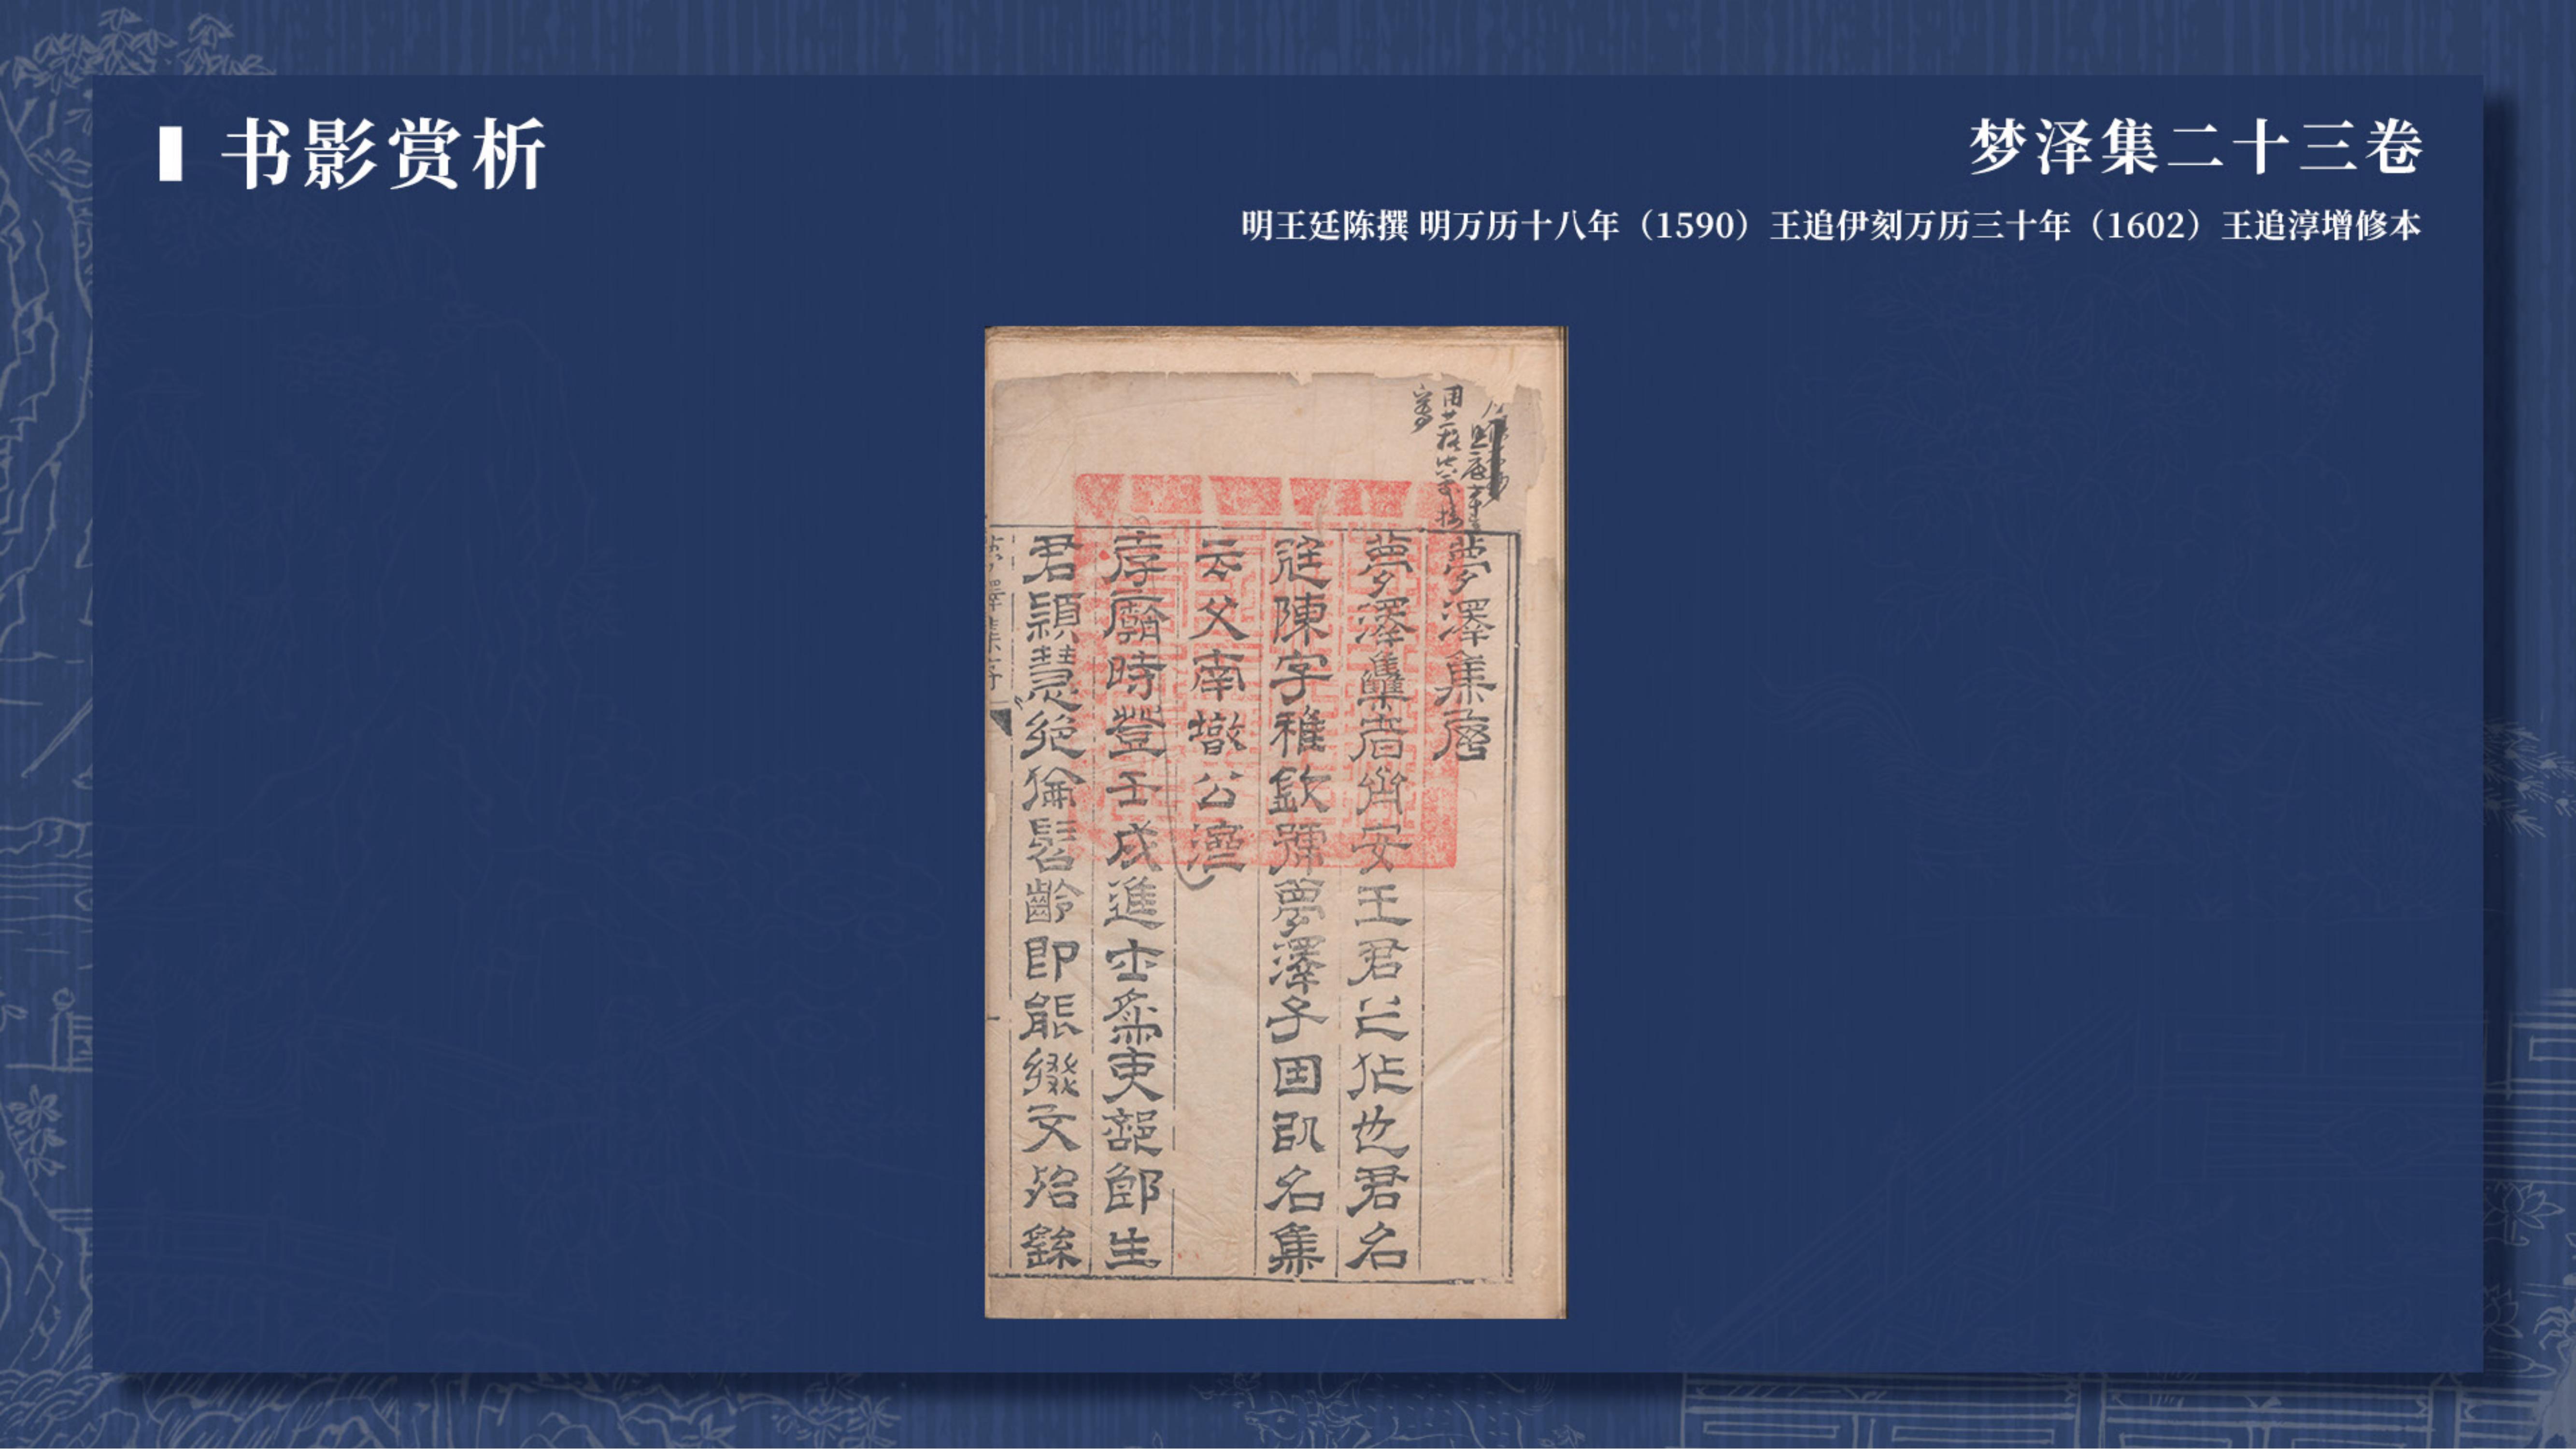 书影赏析
梦泽集二十三卷
明王廷陈撰 明万历十八年（1590）王追伊刻万历三十年（1602）王追淳增修本
夢澤集序
夢澤集者齊安王君之作也君名
廷陳字稚欽號夢澤子因即名集
云父南墩公濟
孝廟時登壬戌進士為吏部郎生
君穎慧絕倫髫齡即能綴文飴餘